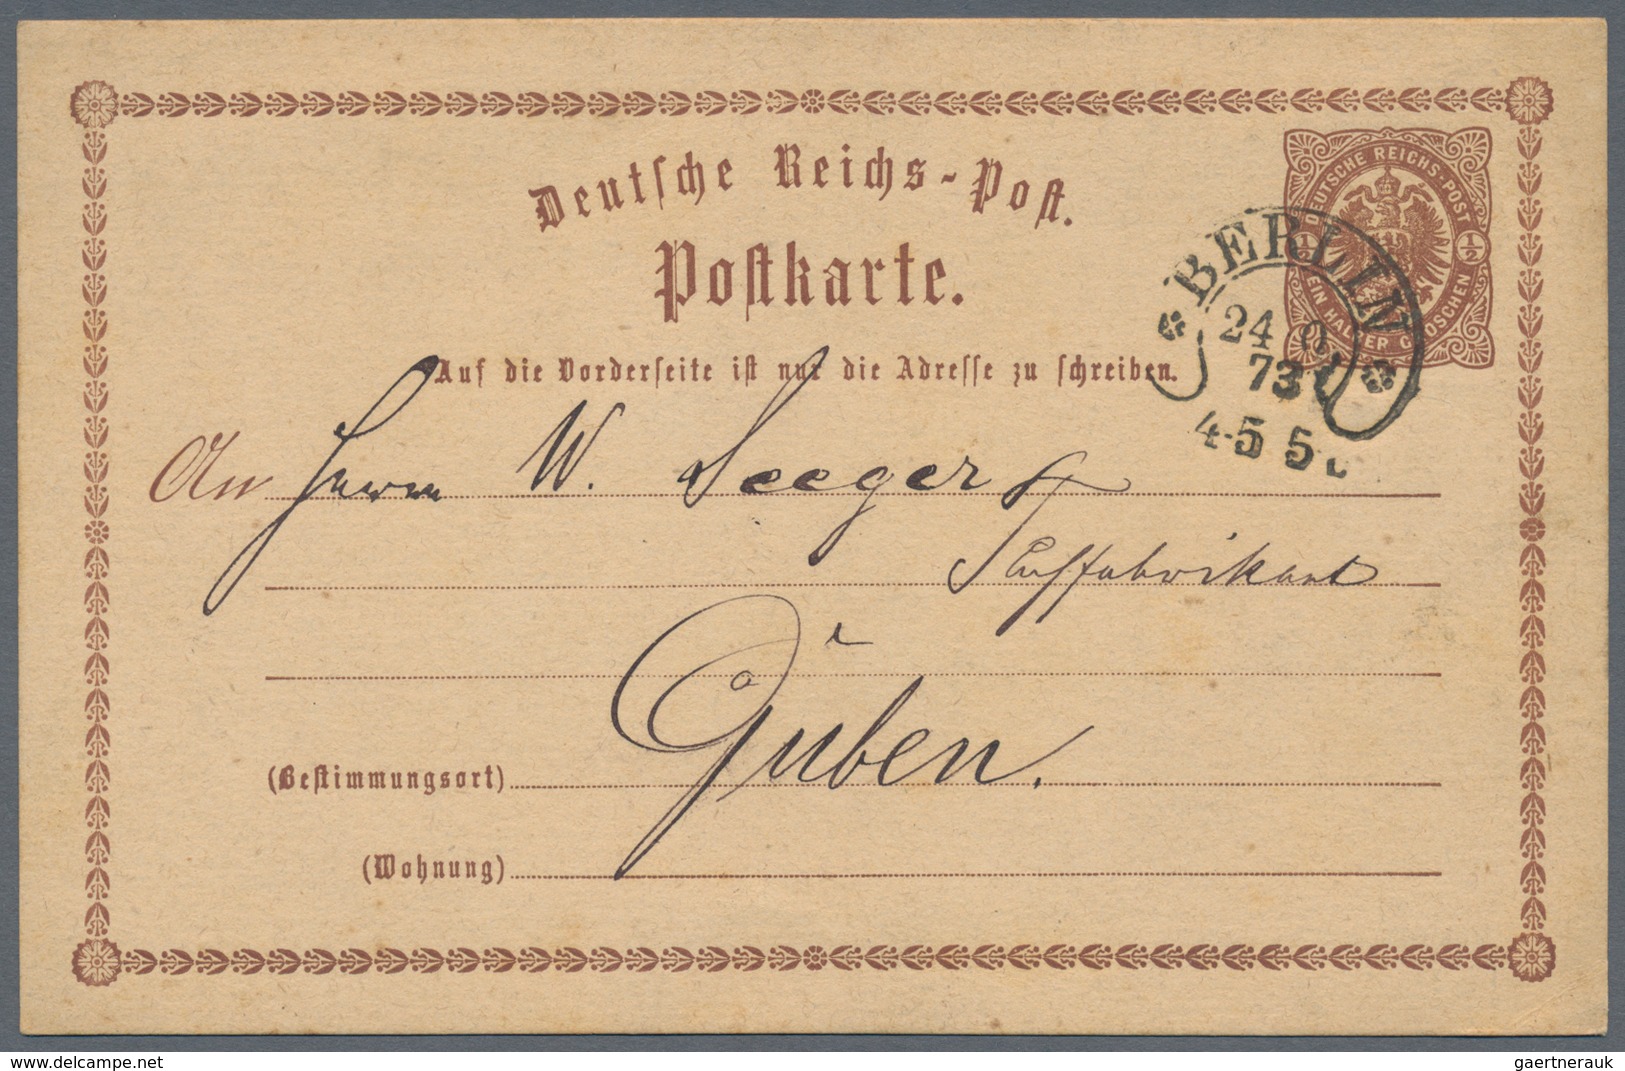 Deutsche Reichs-Post.
DEUTSCHE REICHS-POST
1/2 1/2
EIN HALBER GROSCHEN
Postkarte.
BERLIN
24 O
73
4-5 5
Auf die Vorderseite ist nur die Adresse zu schreiben.
An Herrn W. Seeger
Tuchfabrikant
Guben.
(Bestimmungsort)
(Wohnung)
www.delcampe.net
gaertnerauk